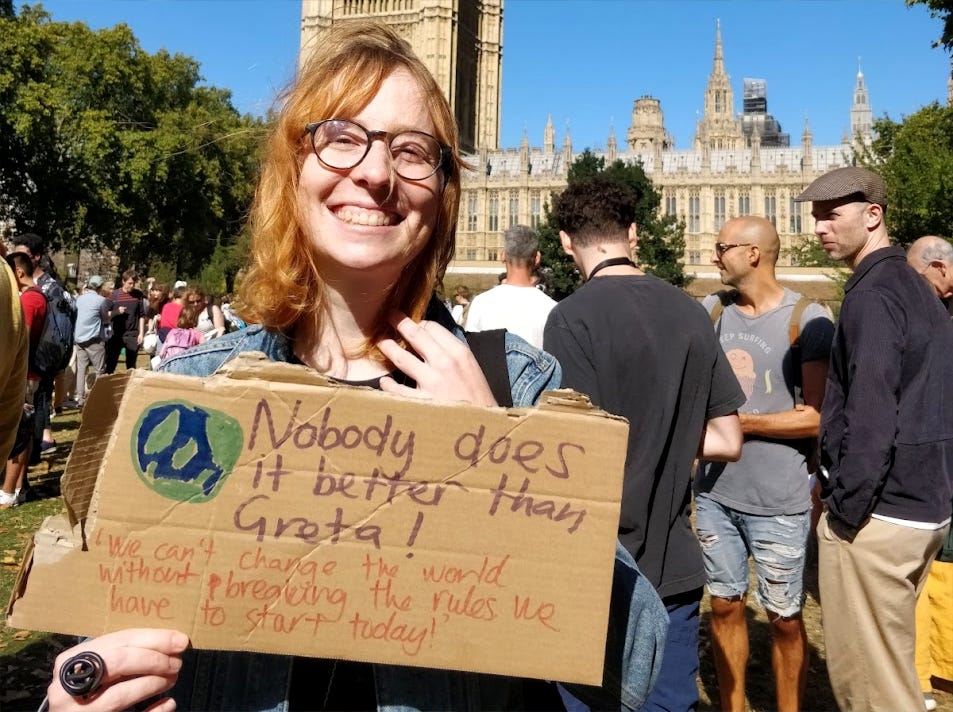 Nobody does
It better than
Greta!
"We can't change the world
without breaking the rules we
have to start today!"
KEEP SURFING